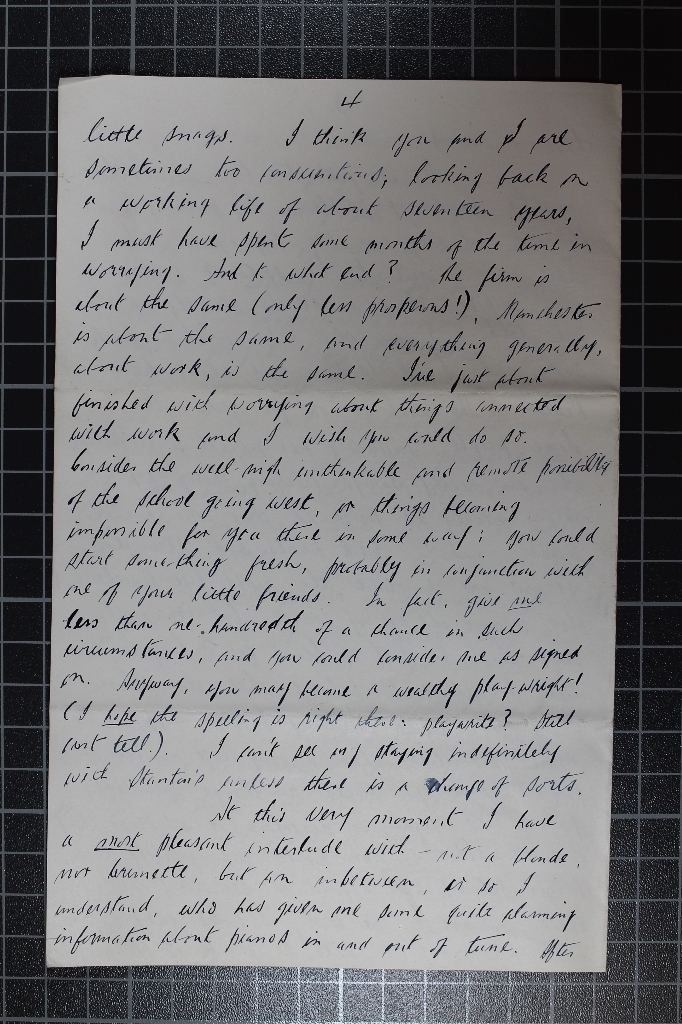 4
little snags. I think you and I are
sometimes too conscientious; looking back on
a working life of about seventeen years,
I must have spent some months of the time in
worrying. And to what end? The firm is
about the same (only less prosperous!), Manchester
is about the same, and everything generally,
about work, is the same. I've just about
finished with worrying about things connected
with work and I wish you could do so.
Consider the well-nigh unthinkable and remote possibility
of the school going west, or things becoming
impossible for you there in some way; you could
start something fresh, probably in conjunction with
one of your little friends. In fact, give me
less than one-hundredth of a chance in such
circumstances, and you could consider me as signed
on. Anyway, you may become a wealthy play-wright!
(I hope the spelling is right there: playwrite? Still
can't tell.). I can't see my staying indefinitely
with Stanton's unless there is a change of sorts.
At this very moment I have
a most pleasant interlude with – not a blonde,
nor brunette, but an inbetween, or so I
understand, who has given me some quite alarming
information about pianos in and out of tune. After